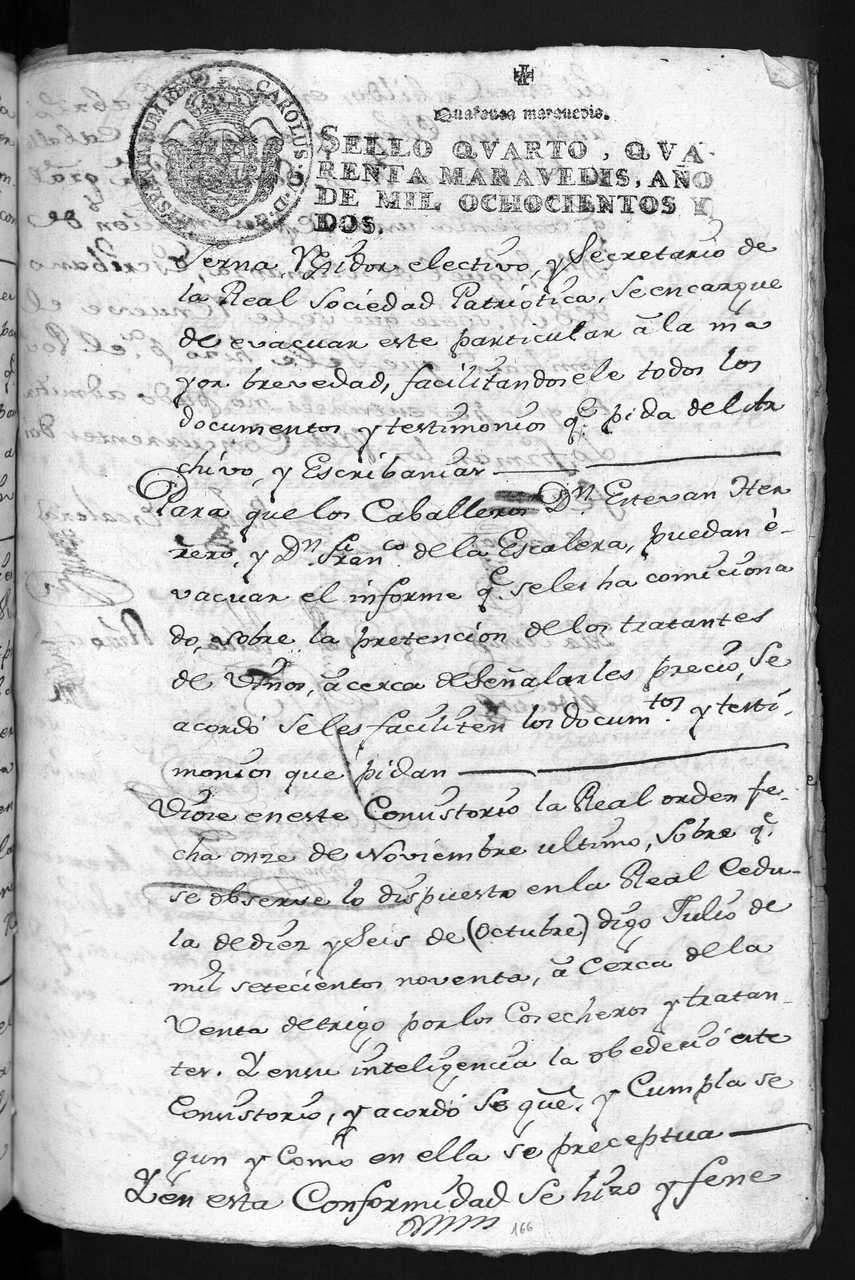 CAROLUS · D · G
✠
Quarenta maravedis.
SELLO QVARTO, QVA-
RENTA MARAVEDIS, AÑO
DE MIL OCHOCIENTOS Y
DOS.
Serna Rexidor electivo, y Secretario de
la Real Sociedad Patriotica, se encargue
de evacuar este particular à la ma
yor brevedad, facilitandosele todos los
documentos y testimonios q.e pida del Ar
chivo, y Escribanias
Para que los Caballeros D.n Estevan Her
rero, y D.n Fran.co de la Escalera, puedan è-
vacuar el informe q.e seles ha comiciona
do, sobre la pretencion de los tratantes
de Vinos, à cerca de Señalarles precio, se
acordó seles faciliten los docum.tos y testi-
monios que pidan
Viose en este Conustorio la Real orden fe-
cha onze de Noviembre ultimo, sobre q.e
se observe lo dispuesto en la Real Cedu-
la de diez y seis de (Octubre) digo Julio de
mil setecientos noventa, à cerca de la
Venta de trigo por los Cosecheros y tratan-
tes. Y en su inteligencia la obedeció este
Conustorio, y acordó se gue, y Cumpla se
gun y Como en ella se preceptua
Y en esta Conformidad se hizo y fene
166